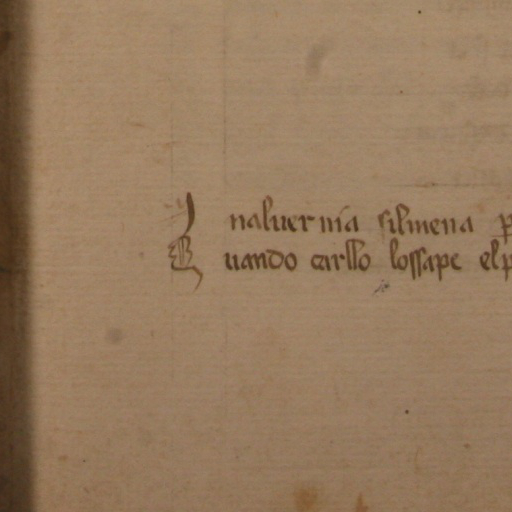 I naluernia silmena p
Q uando carllo lossape elp